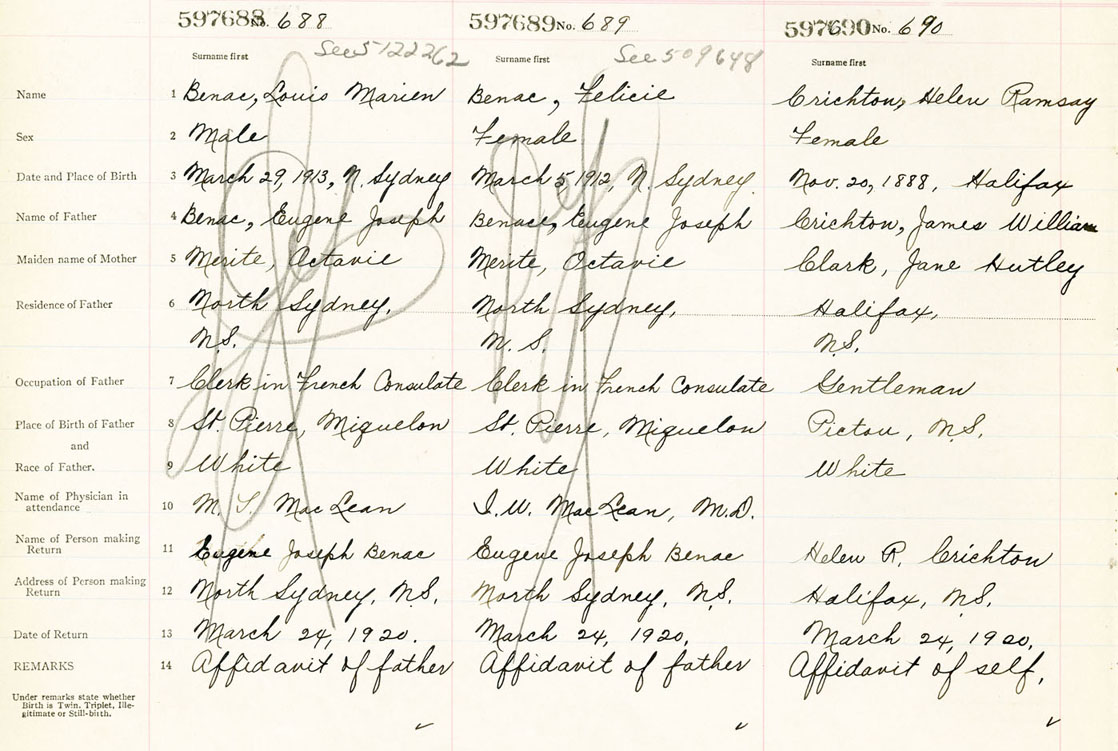 597688 No. 688 597689 No. 689 597690 No. 690
See 5122262 See 509648
Surname first Surname first Surname first
Name 1 Benac, Louis Marien Benac, Felicie Crichton, Helen Ramsay
Sex 2 Male Female Female
Date and Place of Birth 3 March 29, 1913, N. Sydney March 5 1912, N. Sydney. Nov. 20, 1888, Halifax
Name of Father 4 Benac, Eugene Joseph Benac, Eugene Joseph Crichton, James William
Maiden name of Mother 5 Merite, Octavie Merite, Octavie Clark, Jane Hutley
Residence of Father 6 North Sydney, North Sydney, Halifax,
N.S. N. S. N.S.
Occupation of Father 7 Clerk in French Consulate Clerk in French Consulate Gentleman
Place of Birth of Father 8 St. Pierre, Miquelon St. Pierre, Miquelon Pictou, N.S.
and
Race of Father. 9 White White White
Name of Physician in
attendance 10 M. T. MacLean I. W. MacLean, M.D.
Name of Person making
Return 11 Eugene Joseph Benac Eugene Joseph Benac Helen R. Crichton
Address of Person making
Return 12 North Sydney, N.S. North Sydney, N.S. Halifax, N.S.
Date of Return 13 March 24, 1920. March 24, 1920. March 24, 1920.
REMARKS 14 Affidavit of father Affidavit of father Affidavit of self.
Under remarks state whether
Birth is Twin, Triplet, Ille-
gitimate or Still-birth.